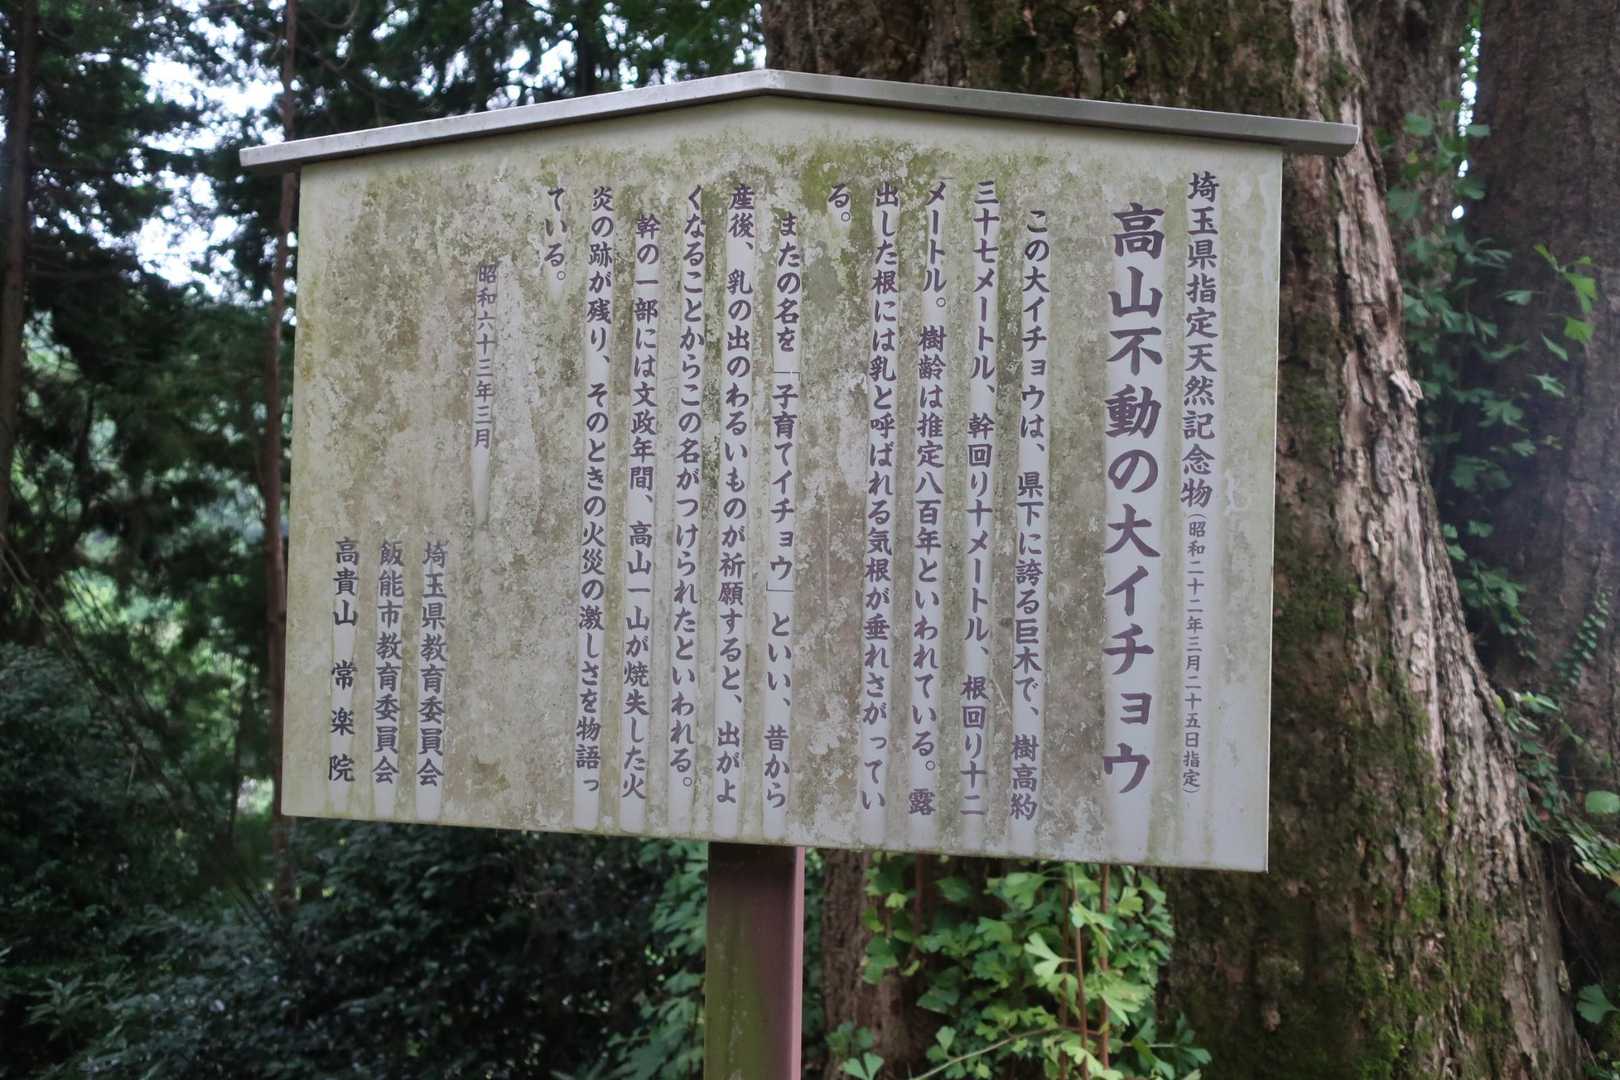 埼玉県指定天然記念物(昭和二十二年三月二十五日指定)
高山不動の大イチョウ
この大イチョウは、県下に誇る巨木で、樹高約
三十七メートル、幹回り十メートル、根回り十二
メートル。樹齢は推定八百年といわれている。露
出した根には乳と呼ばれる気根が垂れさがってい
る。
またの名を「子育てイチョウ」といい、昔から
産後、乳の出のわるいものが祈願すると、出がよ
くなることからこの名がつけられたといわれる。
幹の一部には文政年間、高山一山が焼失した火
炎の跡が残り、そのときの火災の激しさを物語っ
ている。
昭和六十三年三月
埼玉県教育委員会
飯能市教育委員会
高貴山 常楽院